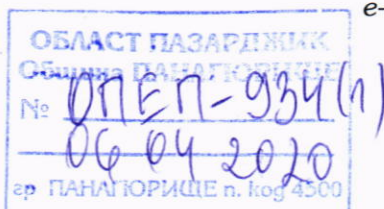 e-
ОБЛАСТ ПАЗАРДЖИК
Община ПАНАГЮРИЩЕ
№ ОПЕП-934(1)
06 04 2020
гр ПАНАГЮРИЩЕ п. код 4500